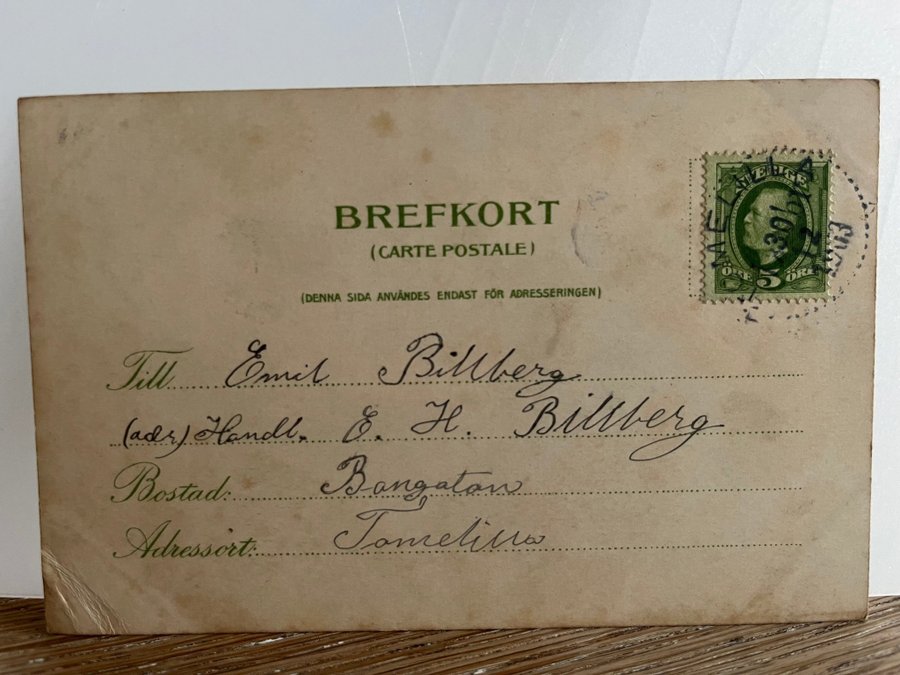 BREFKORT
(CARTE POSTALE)
(DENNA SIDA ANVÄNDES ENDAST FÖR ADRESSERINGEN)
SVERIGE
5 ÖRE
30 12
1903
Till Emil Billberg
(adr) Handl. E. H. Billberg
Bostad: Bangatan
Adressort: Tomelilla